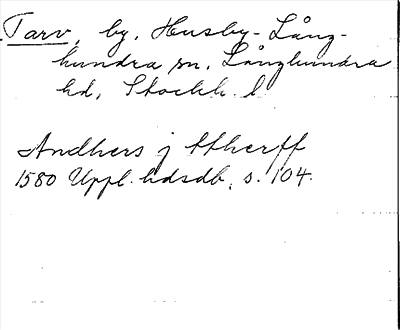 Tarv, by, Husby-Lång-
hundra sn, Långhundra
hd, Stockh. l
Andhers j ttherff
1580 Uppl. hdsdb, s. 104.